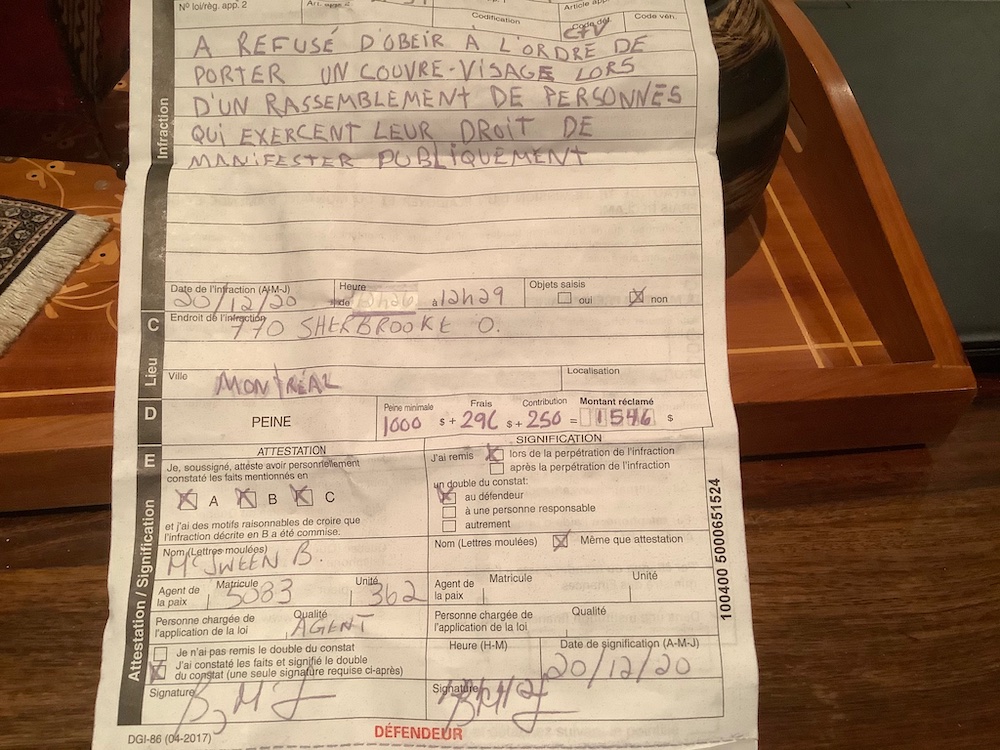 N° loi/règ. app. 2
Codification
Code dél.
Code vén.
CFV
Infraction
A REFUSÉ D'OBEIR A L'ORDRE DE
PORTER UN COUVRE-VISAGE LORS
D'UN RASSEMBLEMENT DE PERSONNES
QUI EXERCENT LEUR DROIT DE
MANIFESTER PUBLIQUEMENT
Date de l'infraction (A-M-J)
20/12/20
Heure
de 12h26 à 12h29
Objets saisis
oui non
C
Lieu
Endroit de l'infraction
770 SHERBROOKE O.
Ville
MONTRÉAL
Localisation
D
PEINE
Peine minimale Frais Contribution Montant réclamé
1000 $ + 296 $ + 250 = 1546 $
E
Attestation / Signification
ATTESTATION
Je, soussigné, atteste avoir personnellement
constaté les faits mentionnés en
A B C
et j'ai des motifs raisonnables de croire que
l'infraction décrite en B a été commise.
Nom (Lettres moulées)
McSWEEN B.
Agent de
la paix
Matricule
5083
Unité
362
Personne chargée de
l'application de la loi
Qualité
AGENT
Je n'ai pas remis le double du constat
J'ai constaté les faits et signifié le double
du constat (une seule signature requise ci-après)
Signature
SIGNIFICATION
J'ai remis
lors de la perpétration de l'infraction
après la perpétration de l'infraction
un double du constat:
au défendeur
à une personne responsable
autrement
Nom (Lettres moulées)
Même que attestation
Agent de
la paix
Matricule
Unité
Personne chargée de
l'application de la loi
Qualité
Heure (H-M)
Date de signification (A-M-J)
20/12/20
Signature
100400 5000651524
DGI-86 (04-2017)
DÉFENDEUR